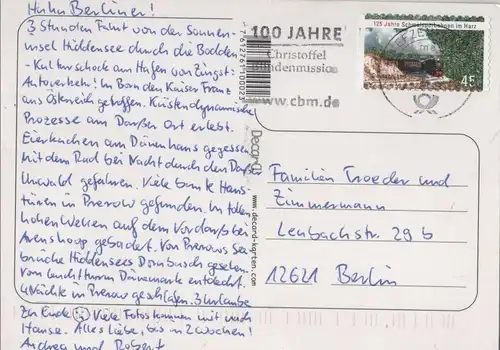 Huhu Berliner!
3 Stunden Fahrt von der Sonnen-
insel Hiddensee durch die Bodden
- Kulturschock am Hafen von Zingst:
Autoverkehr! In Born den Kaiser Franz
aus Österreich getroffen. Küstendynamische
Prozesse am Darßer Ort erlebt.
Eierkuchen am Dünenhaus gegessen
Mit dem Rad bei Nacht durch den Darß-
Urwald gefahren. Viele bunte Haus-
türen in Prerow gefunden. In tollen
hohen Wellen auf dem Vordarß bei
Ahrenshoop gebadet. Von Prerows See-
brücke Hiddensees Dornbusch gesehen.
Vom Leuchtturm Dänemark entdeckt.
4 Nächte in Prerow geschlafen. 3 Urlaube
zu Ende. Viele Fotos kommen mit nach
Hause. Alles Liebe, bis in 2 Wochen!
Andrea und Robert
100 JAHRE
Christoffel
Blindenmission
www.cbm.de
125 Jahre Schmalspurbahnen im Harz
45
Decard
www.decard-karten.com
Familien Troeder und
Zimmermann
Lenbachstr. 29 b
12621 Berlin